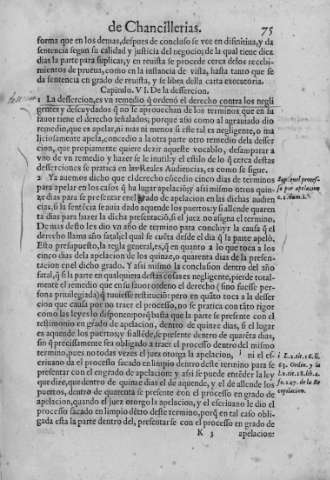 de Chancillerias. 75
forma que en los demas, despues de concluso se vee en difinitiua, y da
sentencia segun su calidad y justicia del negocio; de la qual tiene diez
dias la parte para suplicar, y en reuista se procede cerca destos recebi-
mientos de prueua, como en la instancia de vista, hasta tanto que se
da sentencia en grado de reuista, y se libra della carta executoria.
Capitulo. VI. De la dessercion.
1 La dessercion, es vn remedio q̃ ordenó el derecho contra los negli
gentes y descuydados q̃ no se aprouechan de los terminos que en su
fauor tiene el derecho señalados; porque assi como al agrauiado dio
remedio, que es apelar, ni mas ni menos si este tal es negligente, o ma
liciosamente apela, concedio a la otra parte otro remedio dela desser
cion, que propiamente quiere dezir aquelle vocablo, desamparar a
vno de vn remedio y hazer se le inutil: y el estilo de lo q̃ cerca destas
desserciones se pratica en las Reales Audiencias, es como se sigue.
2 Ya auemos dicho que el derecho cõcedio cinco dias de terminos
para apelar en los casos q̃ ha lugar apelaciõ: y assi mismo otros quin-
ze dias para se presentar en grado de apelacion en las dichas audien
cias, si la sentẽcia se auia dado aquende los puertos: y si allende quaren
ta dias para hazer la dicha presentaciõ, si el juez no asigna el termino.
De mas desto les dio vn año de termino para concluyr la causa q̃ el
derecho llama año fatal, el qual se cueta desde el dia q̃ la parte apeló.
Esto presupuesto, la regla general, es, q̃ en quanto a lo que toca a los
cinco dias dela apelacion de los quinze, o quarenta dias de la presen-
tacion en el dicho grado. Y assi mismo la conclusion dentro del año
fatal, q̃ si la parte en qualquiera destas cosas es negligente, pierde total-
mente el remedio que en su fauor ordeno el derecho (sino fuesse per-
sona priuilegiada) q̃ tuuiesse restituciõ: pero en quãto toca a la desser
cion que causa por no traer el processo, no se pratica con tãto rigor
como las leyes lo disponen: porq̃ basta que la parte se presente con el
testimonio en grado de apelacion, dentro de quinze dias, si el lugar
es aquende los puertos: y si allẽde, se presente dentro de quarẽta dias,
sin q̃ precissamente sea obligado a traer el processo dentro del mismo
termino, pues no todas vezes el juez otorga la apelacion, i ni el es-
criuano da el processo sacado en limpio dentro deste termino para se
presentar con el en grado de apelacion: y assi se puede entẽder la ley
que dize, que dentro de quinze dias el de aquende, y el de allende los
puertos, dentro de quarenta se presente con el processo en grado de
apelacion, quando el juez otorgo la apelacion, y el escriuano le dio el
processo sacado en limpio dẽtro deste termino, porq̃ en tal caso obli-
gada esta la parte dentro del, presentarse con el processo en grado de
K 3 apelacion: